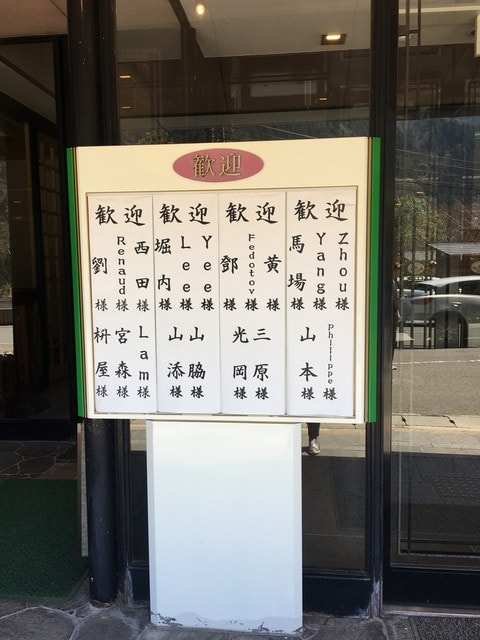 歓迎
歓迎
Zhou様
Yang様
馬場様
Philippe様
山本様
歓迎
黄様
Fedotov様
鄧様
三原様
光岡様
歓迎
Yee様
Lee様
堀内様
山脇様
山添様
歓迎
西田様
Renaud様
劉様
Lam様
宮森様
枡屋様